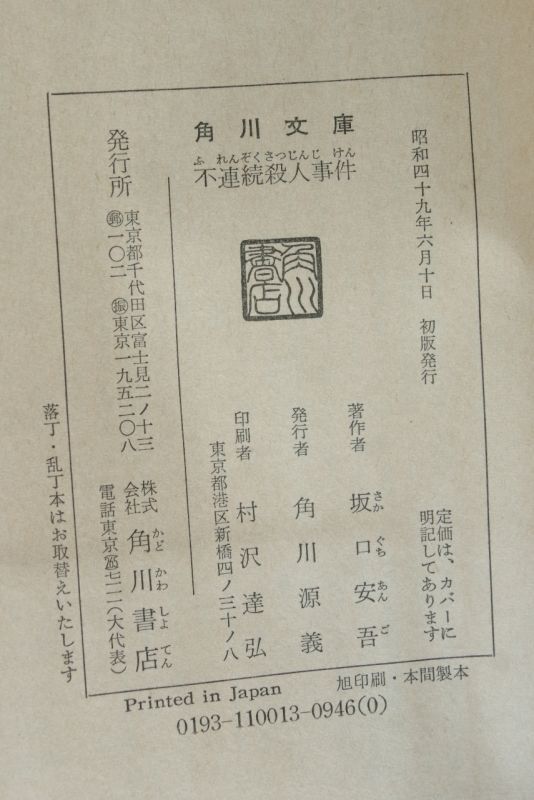 角川文庫
ふれんぞくさつじんじけん
不連続殺人事件
昭和四十九年六月十日 初版発行
定価は、カバーに
明記してあります
角川
書店
著作者 坂口安吾
さかぐちあんご
発行者 角川源義
印刷者 村沢達弘
東京都港区新橋四ノ三十ノ八
発行所
東京都千代田区富士見二ノ十三
郵一〇二 振東京一九五二〇八
株式
会社 角川書店
かどかわしよてん
電話東京 七一一(大代表)
落丁・乱丁本はお取替えいたします
旭印刷・本間製本
Printed in Japan
0193-110013-0946(0)